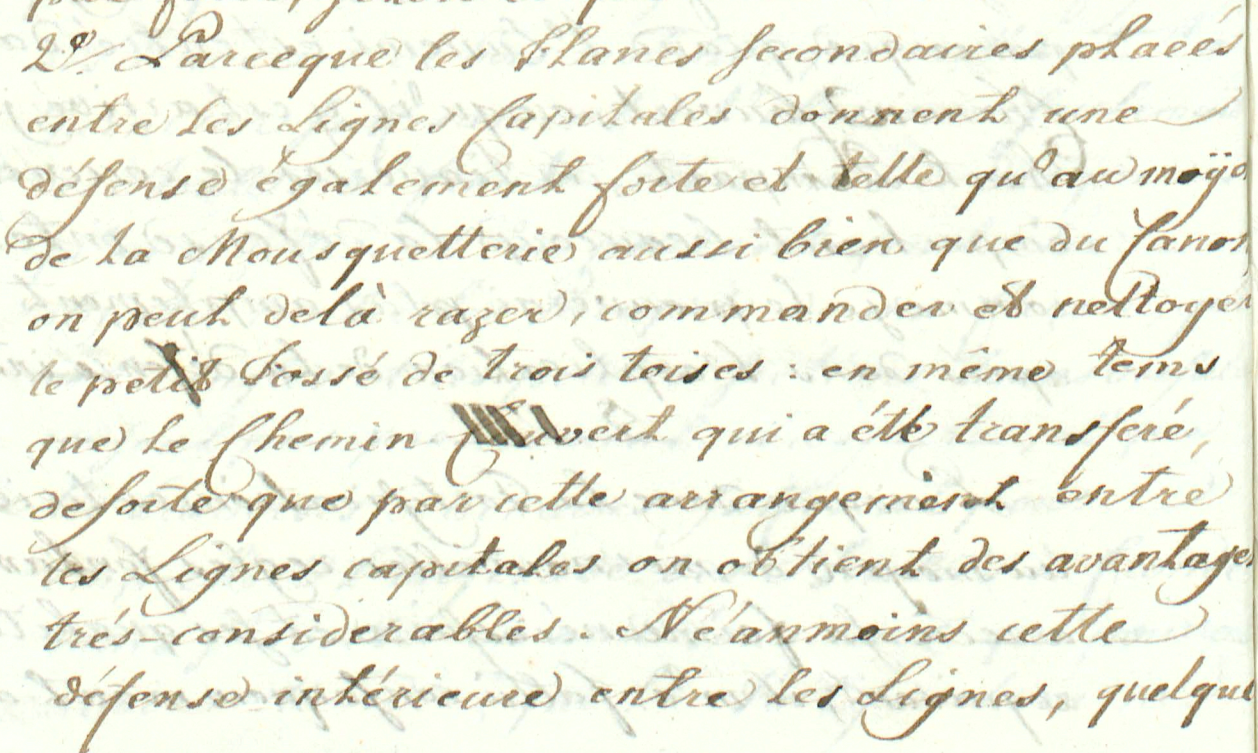 2º/ Parceque les flancs secondaires placés
entre les Lignes Capitales donnent une
défense également forte et telle qu'au moÿe
de la Mousquetterie aussi bien que du Canon
on peut delà razer, commander et nettoyer
le petit Fossé de trois toises : en même tems
que le Chemin Couvert qui a été transferé,
desorte que par cette arrangement entre
les Lignes capitales on obtient des avantages
trés-considerables. Néanmoins cette
défense intérieure entre les Lignes, quelque